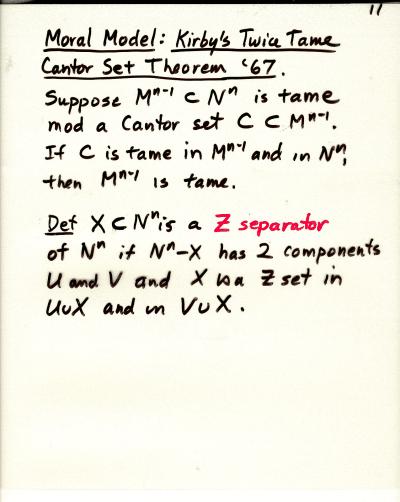 11
Moral Model: Kirby's Twice Tame
Cantor Set Theorem '67.
Suppose Mⁿ⁻¹ ⊂ Nⁿ is tame
mod a Cantor set C ⊂ Mⁿ⁻¹.
If C is tame in Mⁿ⁻¹ and in Nⁿ,
then Mⁿ⁻¹ is tame.
Def X ⊂ Nⁿ is a Z separator
of Nⁿ if Nⁿ-X has 2 components
U and V and X is a Z set in
U∪X and in V∪X.